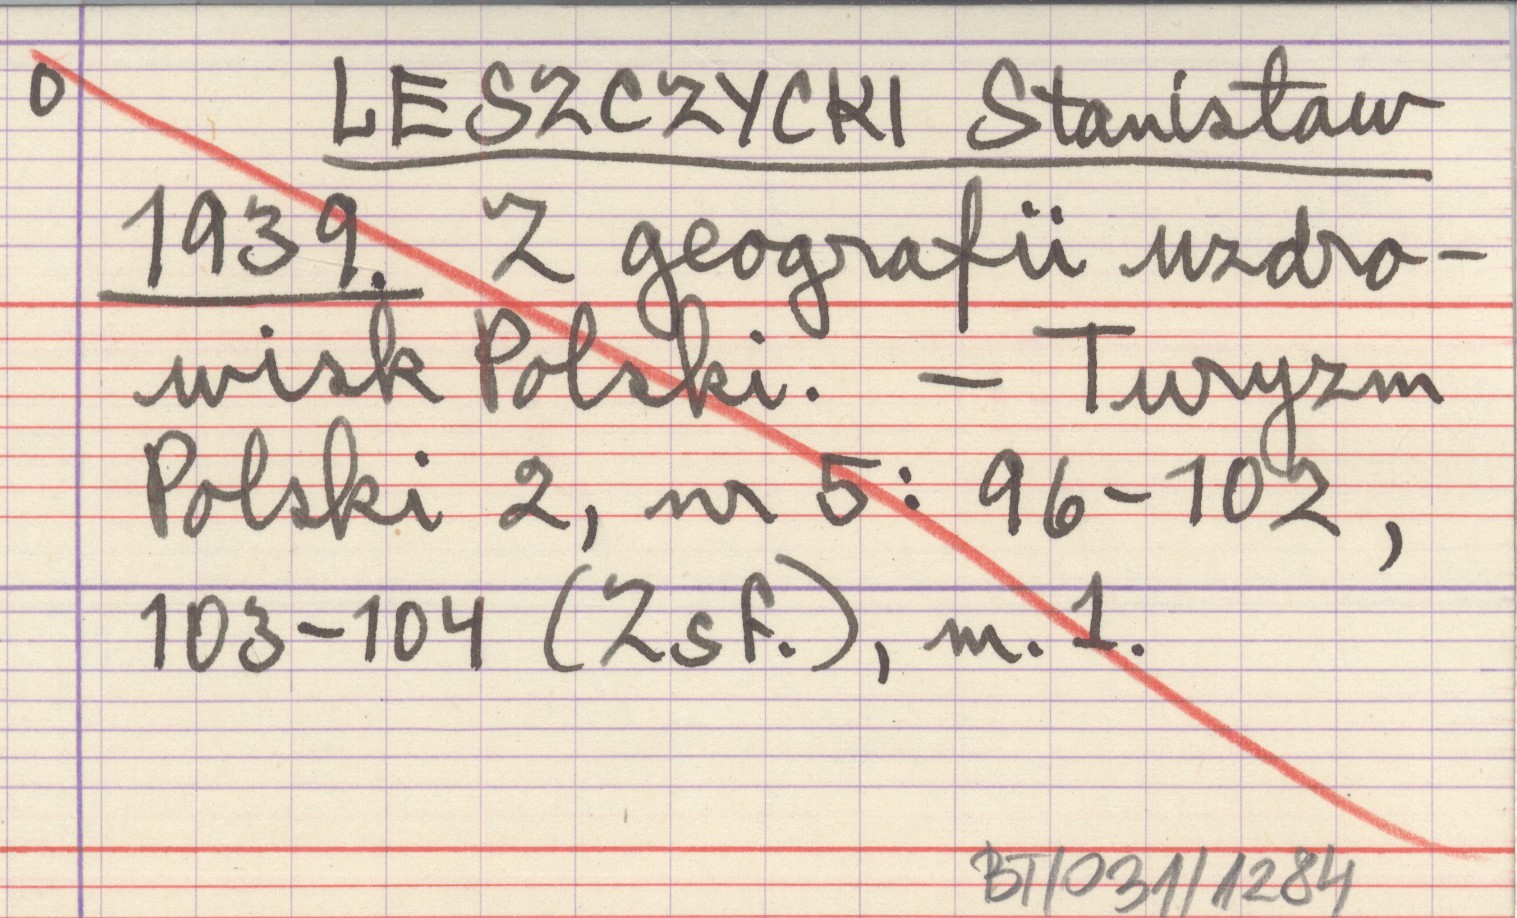 0
LESZCZYCKI Stanisław
1939. Z geografii uzdro-
wisk Polski. — Turyzm
Polski 2, nr 5: 96-102,
103-104 (Zsf.), m. 1.
BT/031/1284